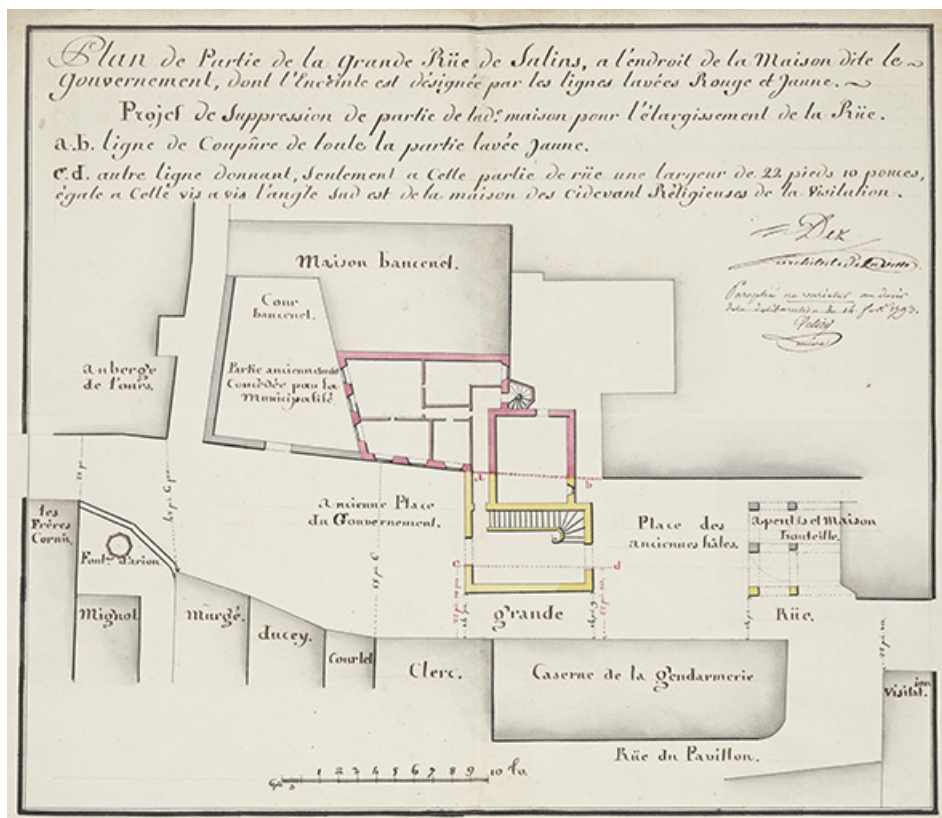 Plan de Partie de la Grande Rüe de Salins, a l'endroit de la Maison dite le
Gouvernement, dont l'Enceinte est désignée par les lignes lavées Rouge et Jaune.
Projet de Suppression de partie de lad.e maison pour l'élargissement de la Rüe.
a.b. ligne de Coupûre de toute la partie lavée Jaune.
c.d. autre ligne donnant, Seulement a Cette partie de rüe une largeur de 22 pieds 10 pouces,
égale a Celle vis a vis l'angle Sud est de la maison des cidevant Réligieuses de la Visitation.
Dex
architecte
Paraphé ne varietur au désir
de la délibération du 14
Maison bancenel.
Cour
bancenel.
Partie anciennement
Concédée par la
Municipalité
auberge
de l'ours.
a
b
ancienne Place
du Gouvernement.
Place des
anciennes hâles.
apentis et Maison
bouteille.
les
Frères
Cornu
Font.ne d'arion
c
d
grande
Rüe.
Mignol
Murgé.
ducey.
Courlet
Clerc.
Caserne de la gendarmerie
Visitat.ion
Rüe du Pavillon.
1 2 3 4 5 6 7 8 9 10 to.